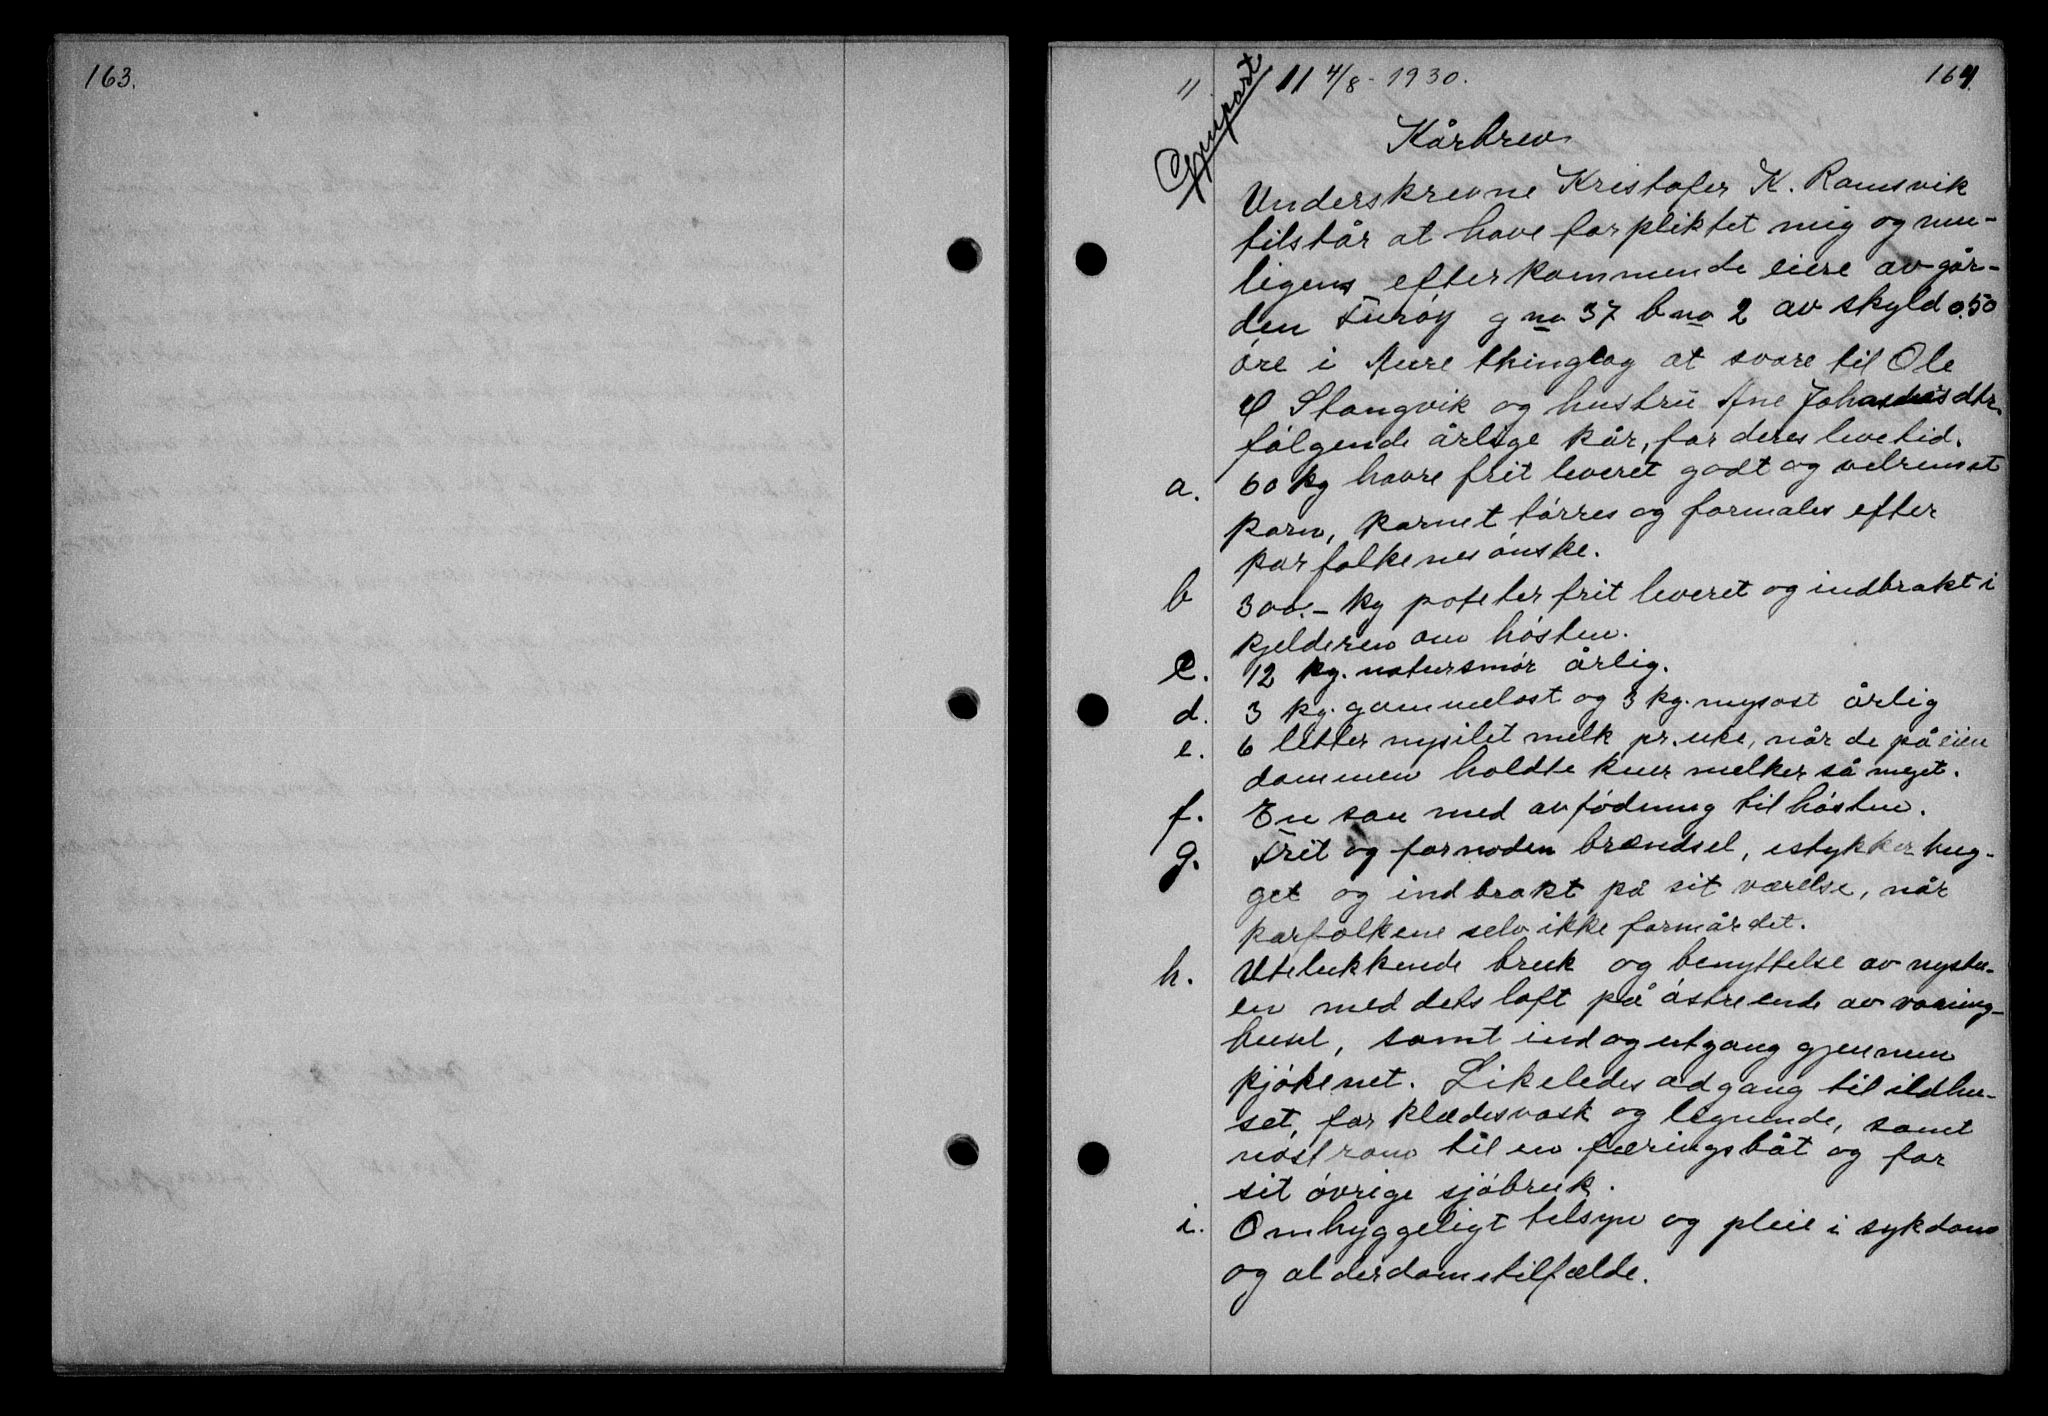 163.
11 11 4/8 - 1930. 164.
Gjenpart
Kårbrev
Underskrevne Kristofer K. Ramsvik
tilstår at have forpliktet mig og mu-
ligens efterkommende eiere av går-
den Furöy g no 37 b no 2 av skyld 0.50
öre i Aure thinglag at svare til Ole
Stangvik og hustru Ane Johannesdtr.
fölgende årlige kår, for deres levetid.
a. 60 kg havre frit leveret godt og velrenset
korn, kornet törres og formales efter
karfolkenes önske.
b 300.- kg poteter frit leveret og indbrakt i
kjelderen om hösten.
c. 12 kg. natursmör årlig.
d. 3 kg. gammelost og 3 kg. mysost årlig
e. 6 litter nysilet melk pr. uke, når de på eien
dommen holdte kuer melker så meget.
f. En sau med avfödning til hösten.
g. Frit og fornoden brændsel, istykker hug-
get og indbrakt på sit værelse, når
karfolkene selv ikke formår det.
h. Utelukkende bruk og benyttelse av nystu-
en med dets loft på östre ende av vaning-
huset, samt ind og utgang gjennem
kjökenet. Likeledes adgang til ildhu-
set, for klædesvask og lignende, samt
nöstrom til en færingsbåt og for
sit övrige sjöbruk.
i. Omhyggeligt tilsyn og pleie i sykdoms
og alderdomstilfælde.